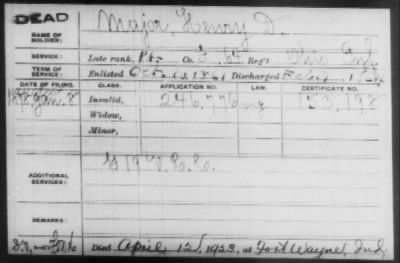 DEAD
NAME OF SOLDIER: Major, Henry D.
SERVICE: Late rank, Pt. Co. 64 Reg't Ohio Inf.
TERM OF SERVICE: Enlisted Oct. 1861 Discharged
DATE OF FILING. CLASS. APPLICATION NO. LAW. CERTIFICATE NO.
Jan. 8 Invalid, 53,198
Widow,
Minor,
ADDITIONAL SERVICES: G 19 V.R.C.
REMARKS:
Died April 12, 1923, at Fort Wayne, Ind.